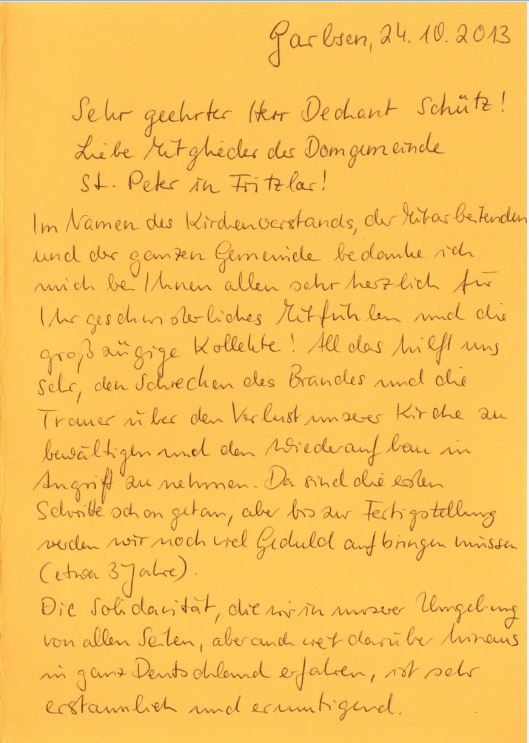 Garbsen, 24.10.2013
Sehr geehrter Herr Dechant Schütz!
Liebe Mitglieder der Domgemeinde
St. Peter in Fritzlar!
Im Namen des Kirchenvorstands, der Mitarbeitenden
und der ganzen Gemeinde bedanke ich
mich bei Ihnen allen sehr herzlich für
Ihr geschwisterliches Mitfühlen und die
großzügige Kollekte! All das hilft uns
sehr, den Schrecken des Brandes und die
Trauer über den Verlust unserer Kirche zu
bewältigen und den Wiederaufbau in
Angriff zu nehmen. Da sind die ersten
Schritte schon getan, aber bis zur Fertigstellung
werden wir noch viel Geduld aufbringen müssen
(etwa 3 Jahre).
Die Solidarität, die wir in unserer Umgebung
von allen Seiten, aber auch weit darüber hinaus
in ganz Deutschland erfahren, ist sehr
erstaunlich und ermutigend.